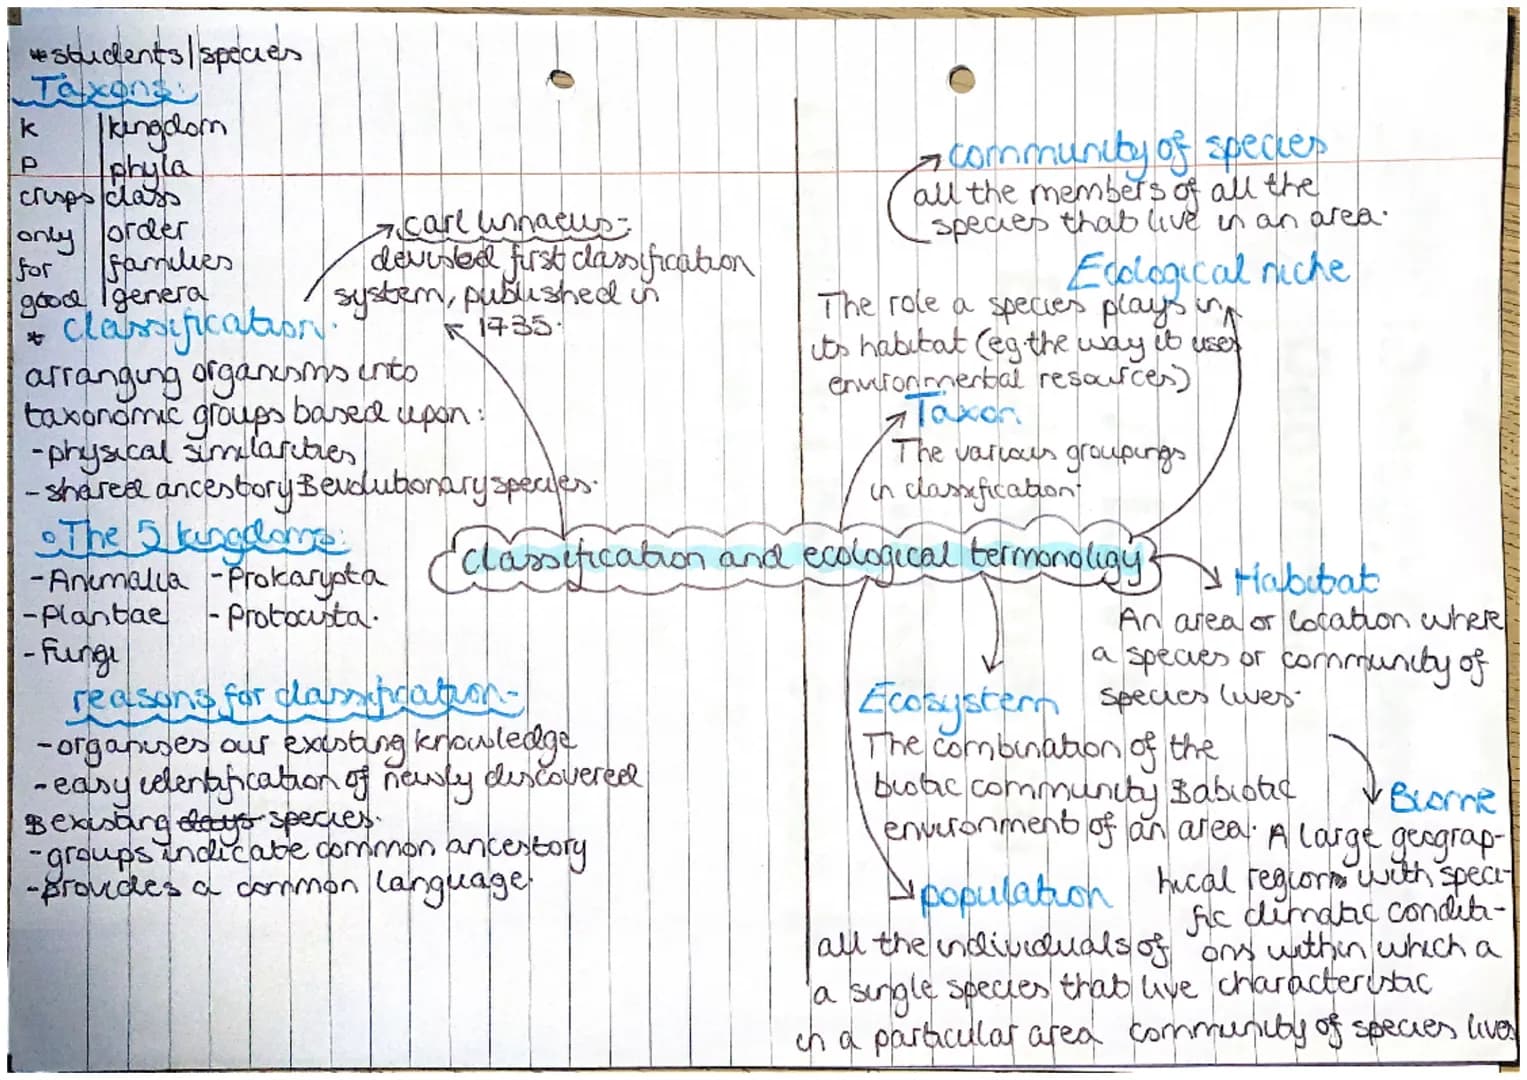 *students/species
Taxons:
K kingdom
P phyla
crisps class
only order
for families
good genera
* classification.
arranging organisms into
taxonomic groups based upon:
-physical similarities
-shared ancestory & evolutionary species.
The 5 kingdoms:
-Animalia -Prokaryota
-Plantae -Protocista.
-Fungi
reasons for classification-
-organises our existing knowledge
-easy identification of newly discovered
& existing days species.
-groups indicate common ancestory
-provides a common language.
carl linnaeus-
devised first classification
system, published in
1735.
classification and ecological termonoligy
community of species
all the members of all the
species that live in an area.
Ecological niche
The role a species plays in
its habitat (eg the way it uses
environmental resources)
Taxon.
The various groupings
in classification.
Habitat
An area or location where
a species or community of
species lives.
Ecosystem
The combination of the
biotic community & abiotic
environment of an area.
Biome
A large geograp-
hical regions with speci-
fic climatic conditi-
ons within which a
characteristic
community of species lives
population
all the individuals of
a single species that live
in a particular area